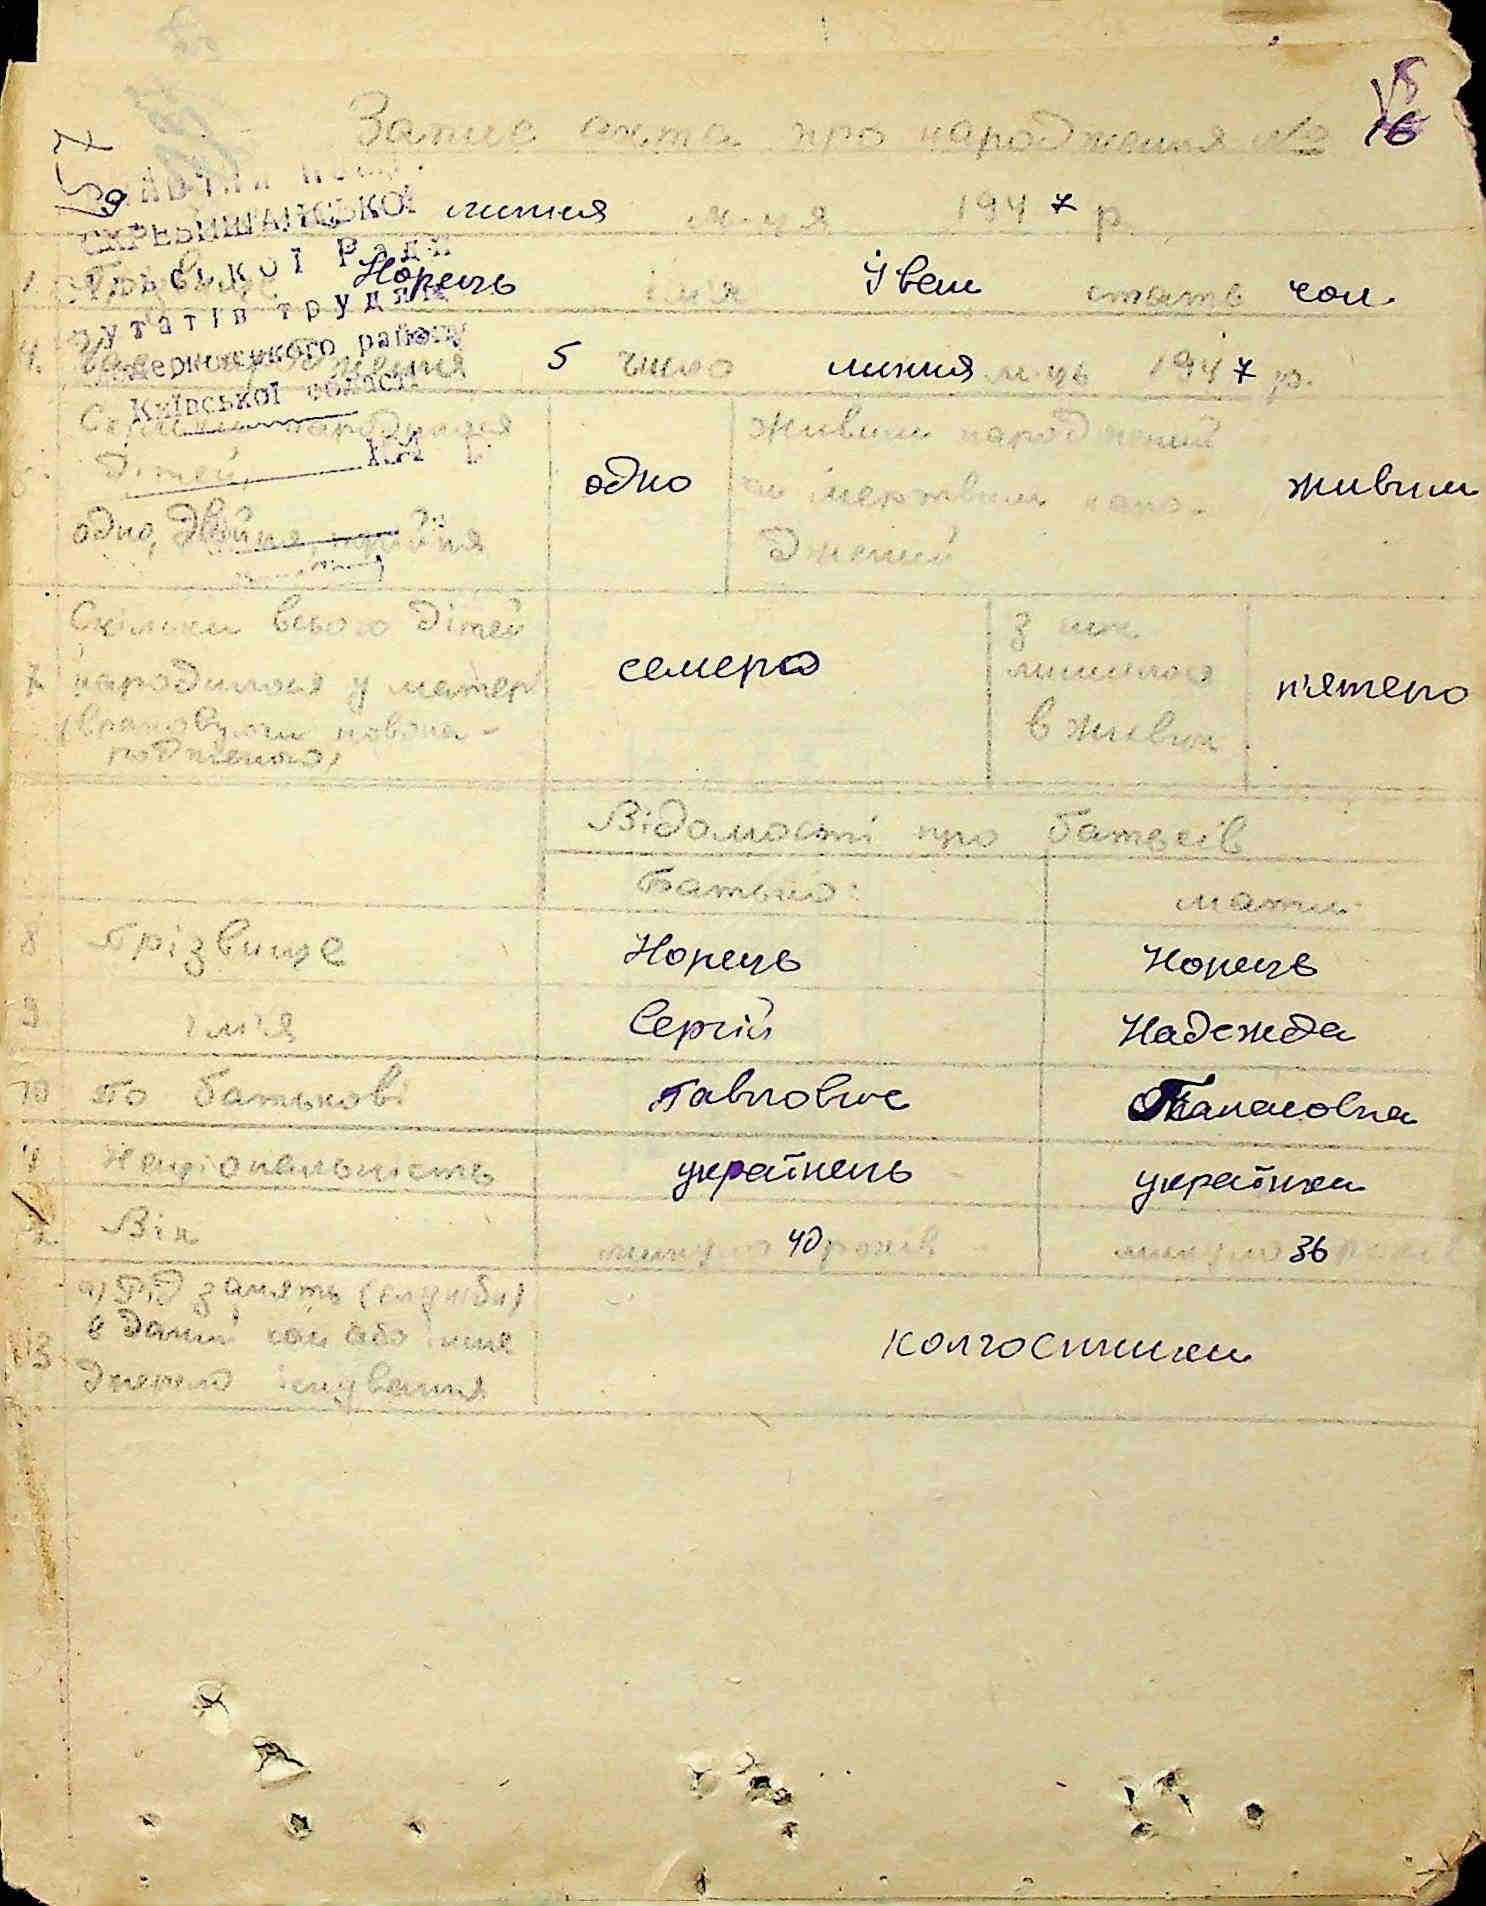 Запис акта про народження № 16
157
СКРЕБИШАНСЬКОЇ
липня м-ця 1947 р.
Сільської Ради
1. Прізвище Норець ім'я Іван стать чол.
депутатів трудящ
4. Час народження 5 число липня м-ць 1947 р.
району
Київської області
Скільки народилося дітей, одно, двійня, трійня
одно
живим народжений чи мертвим народжений
живим
7. Скільки всього дітей народилося у матері (враховуючи новонародженого)
семеро
з них лишилося в живих
п'ятеро
Відомості про батьків
Батько: мати
8 Прізвище Норець Норець
9 ім'я Сергій Надежда
10 По батькові Павлович Панасовна
11 Національність українець українка
12 Вік минуло 40 років минуло 36 років
13 а) Рід занять (служби) в даний час або інше джерело існування
колгоспники